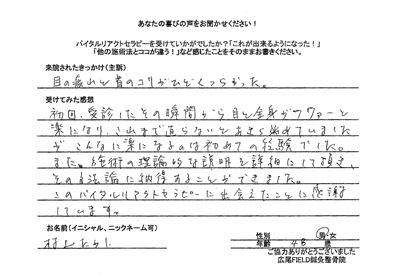 あなたの喜びの声をお聞かせください！
バイタルリアクトセラピーを受けていかがでしたか？「これが出来るようになった！」
「他の施術法とココが違う！」など感じたことをそのままお書きください。
来院されたきっかけ(主訴)
目の疲れと首のコリがひどくつらかった。
受けてみた感想
初回、受診したその瞬間から目と全身がフワァーと
楽になり、これまで直らないとあきらめていました
が、こんなに楽になるのは初めての経験でした。
また、施術の理論的な説明を詳細にして頂き、
その方法論に納得することができました。
このバイタルリアクトセラピーに出会えたことに感謝
しています。
お名前(イニシャル、ニックネーム可)
村上たかし
性別 男・女
年齢 48 歳
ご協力ありがとうございました
広尾FIELD鍼灸整骨院